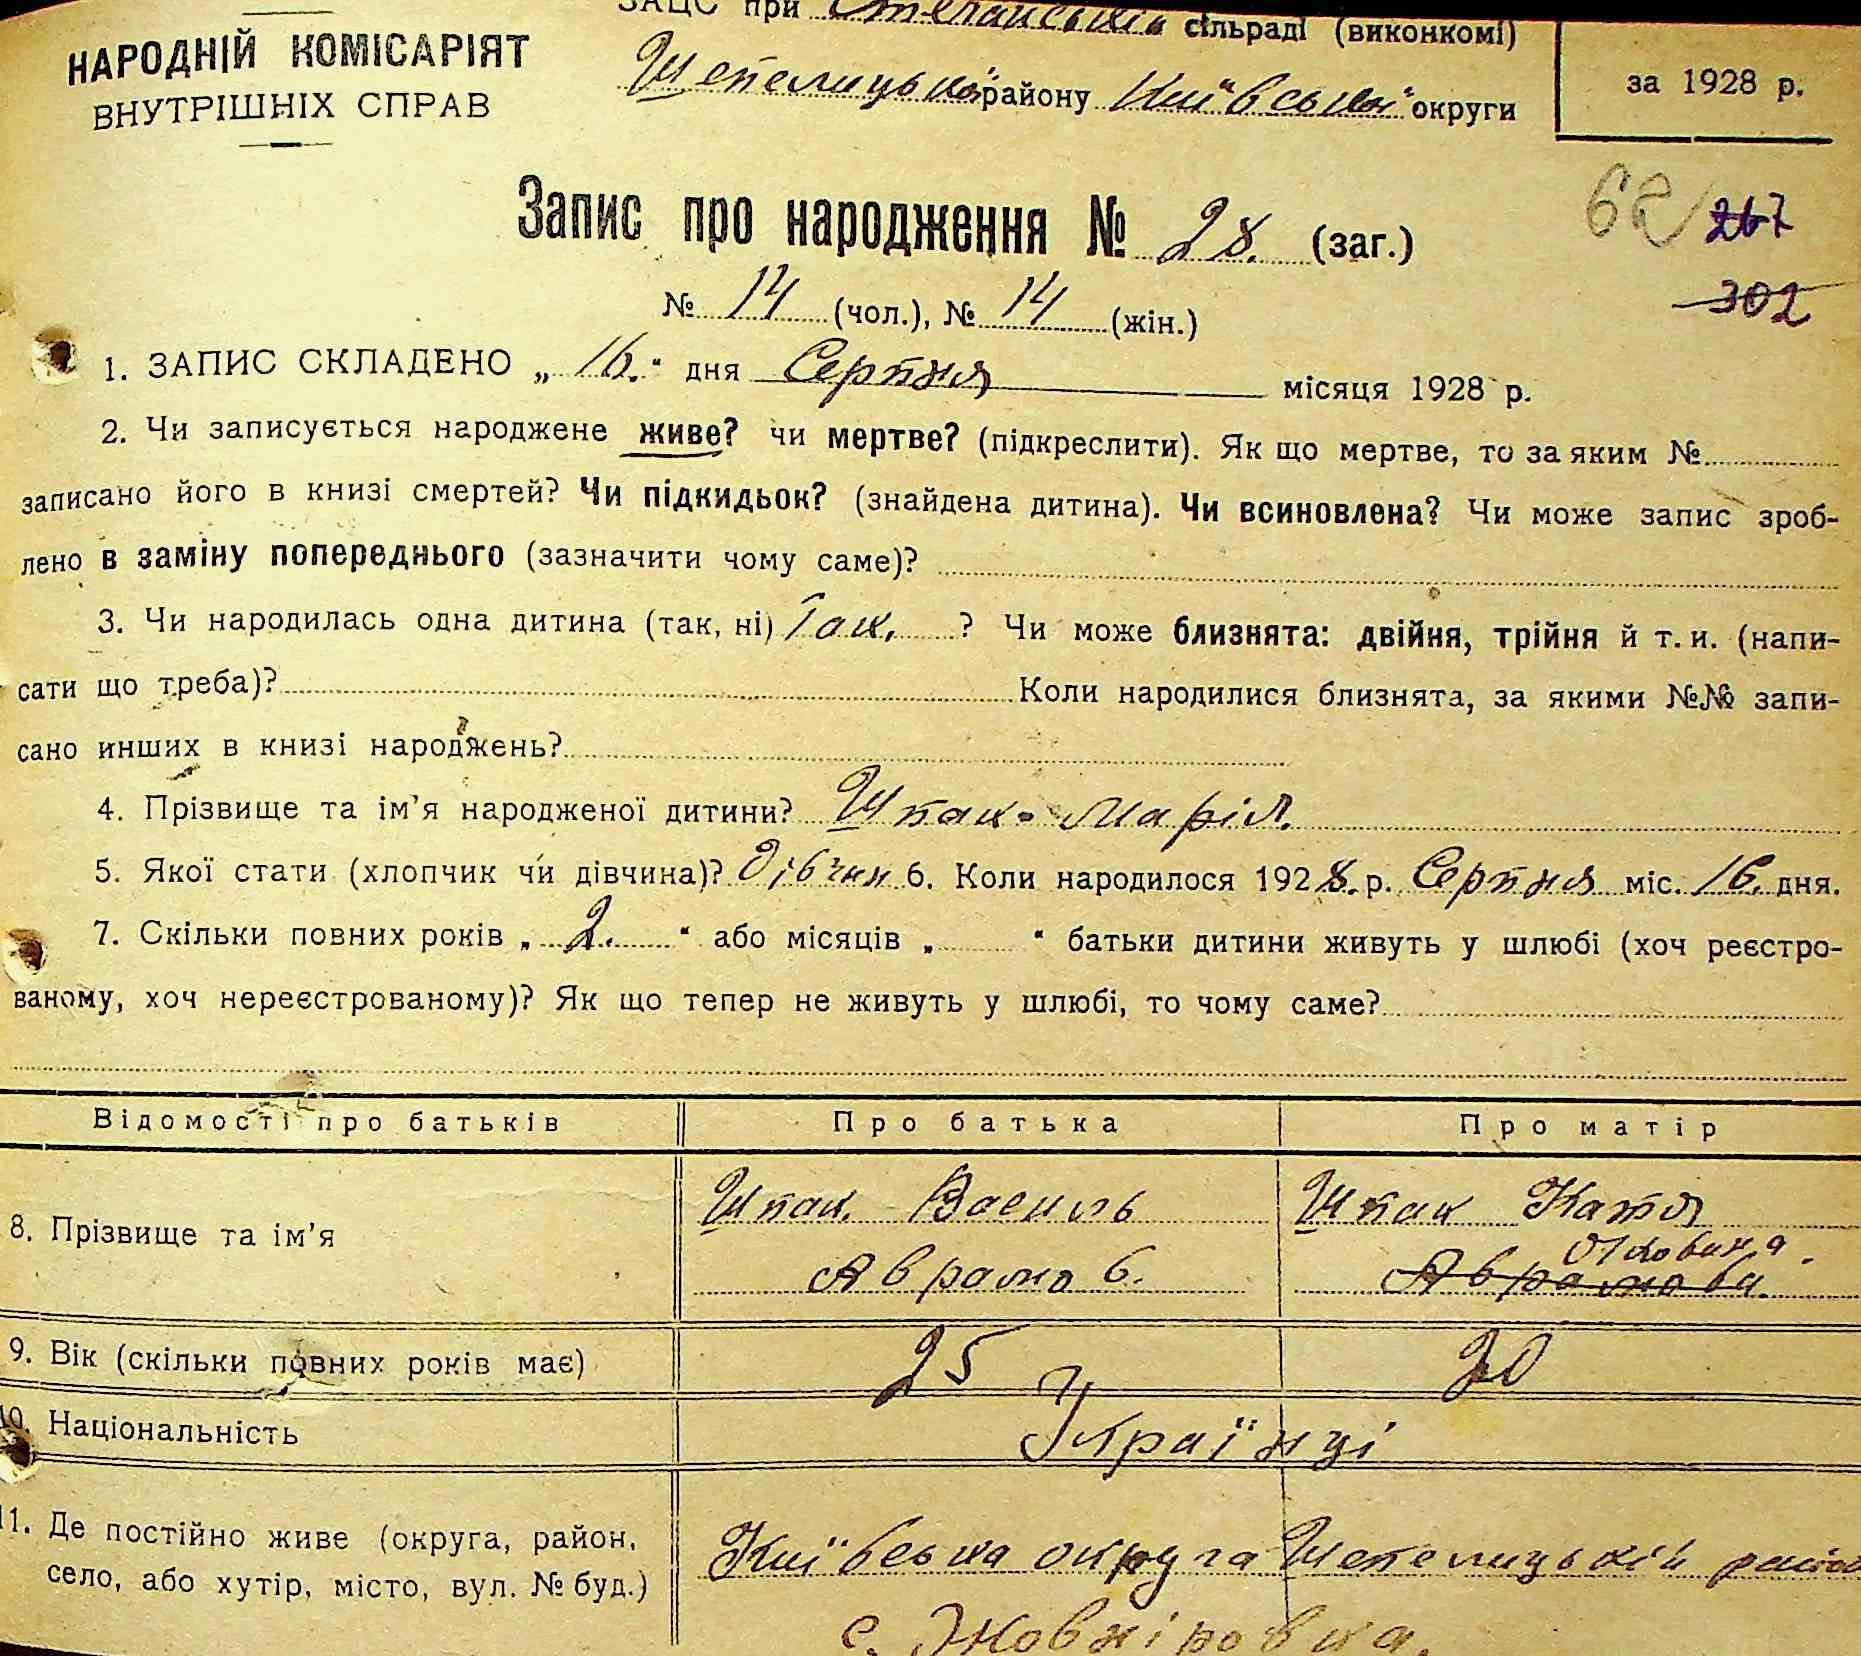 НАРОДНІЙ КОМІСАРІЯТ
ВНУТРІШНІХ СПРАВ
ЗАЦС при сільраді (виконкомі)
Шепелицької району Київської округи
за 1928 р.
Запис про народження № 28. (заг.)
62/267
302
№ 14 (чол.), № 14 (жін.)
1. ЗАПИС СКЛАДЕНО „ 16. “ дня Серпня місяця 1928 р.
2. Чи записується народжене живе? чи мертве? (підкреслити). Як що мертве, то за яким №
записано його в книзі смертей? Чи підкидьок? (знайдена дитина). Чи всиновлена? Чи може запис зроб-
лено в заміну попереднього (зазначити чому саме)?
3. Чи народилась одна дитина (так, ні) Так. ? Чи може близнята: двійня, трійня й т. и. (напи-
сати що треба)? Коли народилися близнята, за якими №№ запи-
сано инших в книзі народжень?
4. Прізвище та ім’я народженої дитини? Шпак Марія.
5. Якої стати (хлопчик чи дівчина)? Дівчин 6. Коли народилося 1928. р. Серпня міс. 16. дня.
7. Скільки повних років „ 2. “ або місяців „ “ батьки дитини живуть у шлюбі (хоч реєстро-
ваному, хоч нереєстрованому)? Як що тепер не живуть у шлюбі, то чому саме?
Відомості про батьків Про батька Про матір
8. Прізвище та ім’я Шпак Василь Шпак Катя
Аврамов. Аврамова.
9. Вік (скільки повних років має) 25 20
10. Національність Українці
11. Де постійно живе (округа, район, село, або хутір, місто, вул. № буд.) Київська округа Шепелицький район
с. Жовніровка.